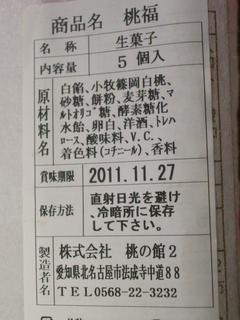 商品名 桃福
名称 生菓子
内容量 5個入
原材料名 白餡、小牧篠岡白桃、
砂糖、餅粉、麦芽糖、マ
ルトオリゴ糖、酵素糖化
水飴、卵白、洋酒、トレハ
ロース、酸味料、V.C.、
着色料(コチニール)、香料
賞味期限 2011.11.27
保存方法 直射日光を避け、
冷暗所に保存
して下さい。
製造者名 株式会社 桃の館2
愛知県北名古屋市法成寺中道88
TEL0568-22-3232